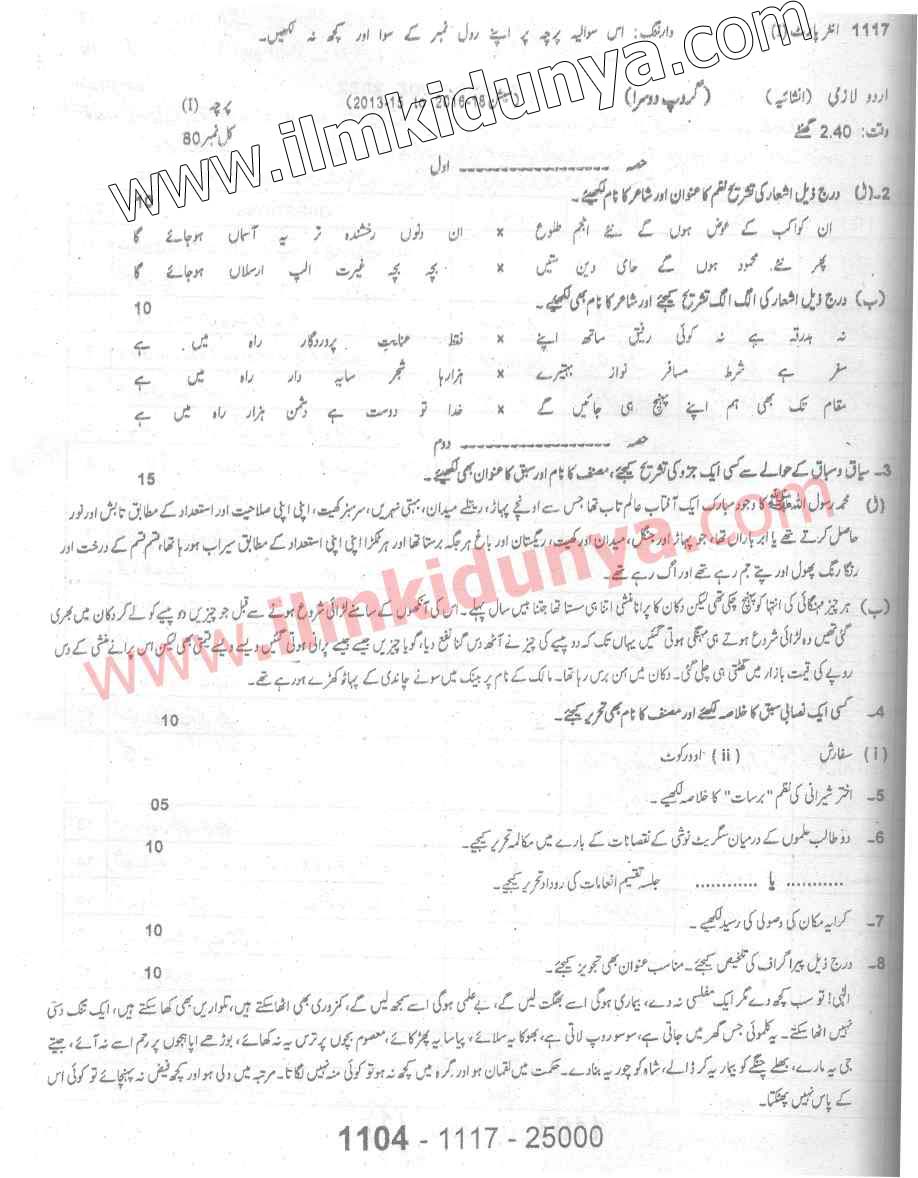 1117 انٹر پارٹ (I) وارننگ: اس سوالیہ پرچہ پر اپنے رول نمبر کے سوا اور کچھ نہ لکھیں۔
اردو لازمی (انشائیہ) (گروپ دوسرا) (سیشن 2016-18 تا 2013-15) پرچہ (I)
وقت: 2.40 گھنٹے کل نمبر 80
حصہ ------------------ اول
2-(ل) درج ذیل اشعار کی تشریح نظم کا عنوان اور شاعر کا نام لکھیئے۔ 10
ان کواکب کے عوض ہوں گے نئے انجم طلوع × ان دنوں رخشندہ تر یہ آسماں ہوجائے گا
پھر نئے محمود ہوں گے حامی دین متیں × بچہ بچہ غیرت الپ ارسلاں ہوجائے گا
(ب) درج ذیل اشعار کی الگ الگ تشریح کیجئے اور شاعر کا نام بھی لکھیئے۔ 10
نہ بدرقہ ہے نہ کوئی رفیق ساتھ اپنے × فقط عنایت پروردگار راہ میں ہے
سفر ہے شرط مسافر نواز بہتیرے × ہزارہا شجر سایہ دار راہ میں ہے
مقام تک بھی ہم اپنے پہنچ ہی جائیں گے × خدا تو دوست ہے دشمن ہزار راہ میں ہے
حصہ ------------------ دوم
3- سیاق و سباق کے حوالے سے کسی ایک جزو کی تشریح کیجئے، مصنف کا نام اور سبق کا عنوان بھی لکھیئے۔ 15
(ل) محمد رسول اللہ ﷺ کا وجود مبارک ایک آفتاب عالم تاب تھا جس سے اونچے پہاڑ، ریتلے میدان، بہتی نہریں، سرسبز کھیت، اپنی اپنی صلاحیت اور استعداد کے مطابق تابش اور نور
حاصل کرتے تھے یا ابر باراں تھا، جو پہاڑ اور جنگل، میدان اور کھیت، ریگستان اور باغ ہر جگہ برستا تھا اور ہر ٹکڑا اپنی اپنی استعداد کے مطابق سیراب ہو رہا تھا، قسم قسم کے درخت اور
رنگا رنگ پھول اور پتے جم رہے تھے اور اگ رہے تھے۔
(ب) ہر چیز مہنگائی کی انتہا کو پہنچ چکی تھی لیکن دکان کا پرانا منشی اتنا ہی سستا تھا جتنا بیس سال پہلے۔ اس کی آنکھوں کے سامنے لڑائی شروع ہونے سے قبل جو چیزیں دو پیسے کو لے کر دکان میں بھری
گئی تھیں وہ لڑائی شروع ہوتے ہی مہنگی ہوتی گئیں یہاں تک کہ دو پیسے کی چیز نے آٹھ دس گنا نفع دیا، گویا چیزیں جیسے جیسے پرانی ہوتی گئیں ویسے ویسے قیمتی تھی لیکن اس پرانے منشی کے دس
روپے کی قیمت بازار میں گھٹتی ہی چلی گئی۔ دکان میں ہن برس رہا تھا۔ مالک کے نام پر بینک میں سونے چاندی کے پہاڑ کھڑے ہورہے تھے۔
4- کسی ایک نصابی سبق کا خلاصہ لکھئے اور مصنف کا نام بھی تحریر کیجئے۔ 10
(i) سفارش (ii) اوورکوٹ
5- اختر شیرانی کی نظم "برسات" کا خلاصہ لکھیے۔ 05
6- دو طالب علموں کے درمیان سگریٹ نوشی کے نقصانات کے بارے میں مکالمہ تحریر کیجیے۔ 10
............ یا ............ جلسہ تقسیم انعامات کی روداد تحریر کیجیے۔
7- کرایہ مکان کی وصولی کی رسید لکھیے۔ 10
8- درج ذیل پیراگراف کی تلخیص کیجئے۔ مناسب عنوان بھی تجویز کیجئے۔ 10
الٰہی! تو سب کچھ دے مگر ایک مفلسی نہ دے، بیماری ہوگی اسے بھگت لیں گے، بے علمی ہوگی اسے سمجھ لیں گے، کمزوری بھی اٹھا سکتے ہیں، تلواریں بھی کھا سکتے ہیں، ایک تنگ دستی
نہیں اٹھا سکتے۔ یہ کلموئی جس گھر میں جاتی ہے، سو سو روپ لاتی ہے، بھوکا یہ سلائے، پیاسا یہ پھڑکائے، معصوم بچوں پر ترس یہ نہ کھائے، بوڑھے اپاہجوں پر رحم اسے نہ آئے، جیتے
جی یہ مارے، بھلے چنگے کو بیمار یہ کر ڈالے، شاہ کو چور یہ بنادے۔ حکمت میں لقمان ہو اور گرہ میں کچھ نہ ہو تو کوئی منہ نہیں لگاتا۔ مرتبہ میں ولی ہو اور کچھ فیض نہ پہنچائے تو کوئی اس
کے پاس نہیں پھٹکتا۔
1104 - 1117 - 25000
www.ilmkidunya.com
www.ilmkidunya.com